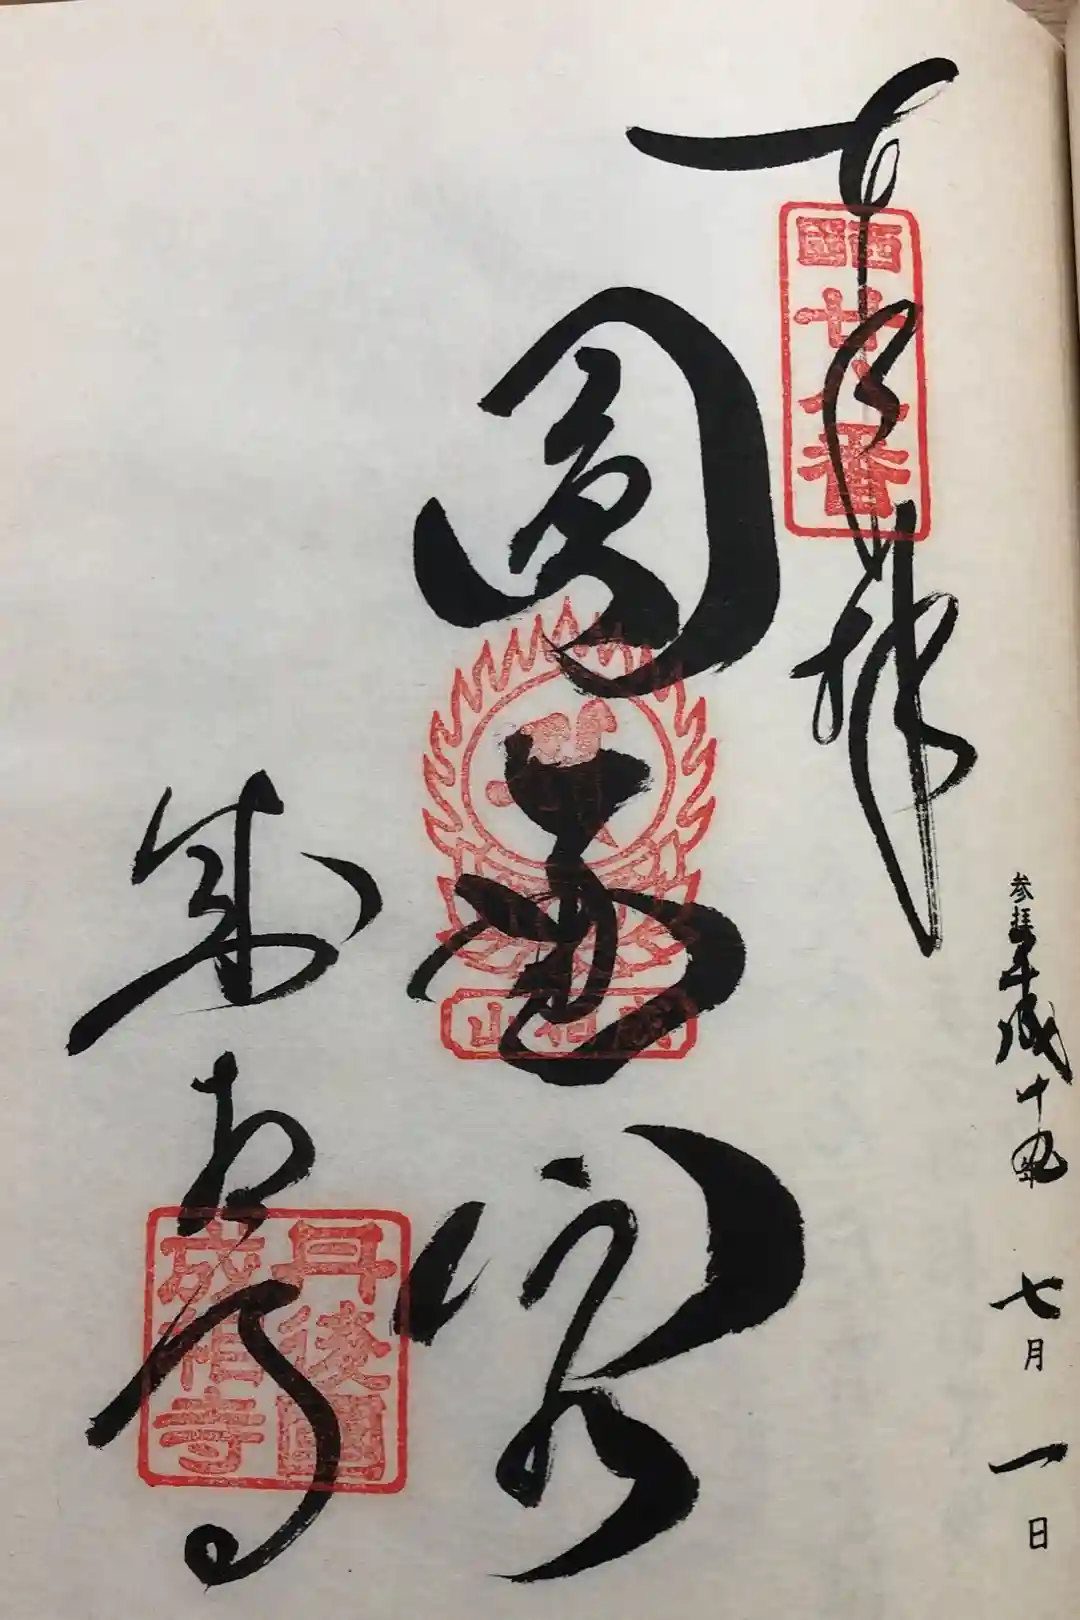 西國
廿八番
圓通閣
成相山
成相寺
丹後國
成相寺
参拝 平成十九年 七月 一日